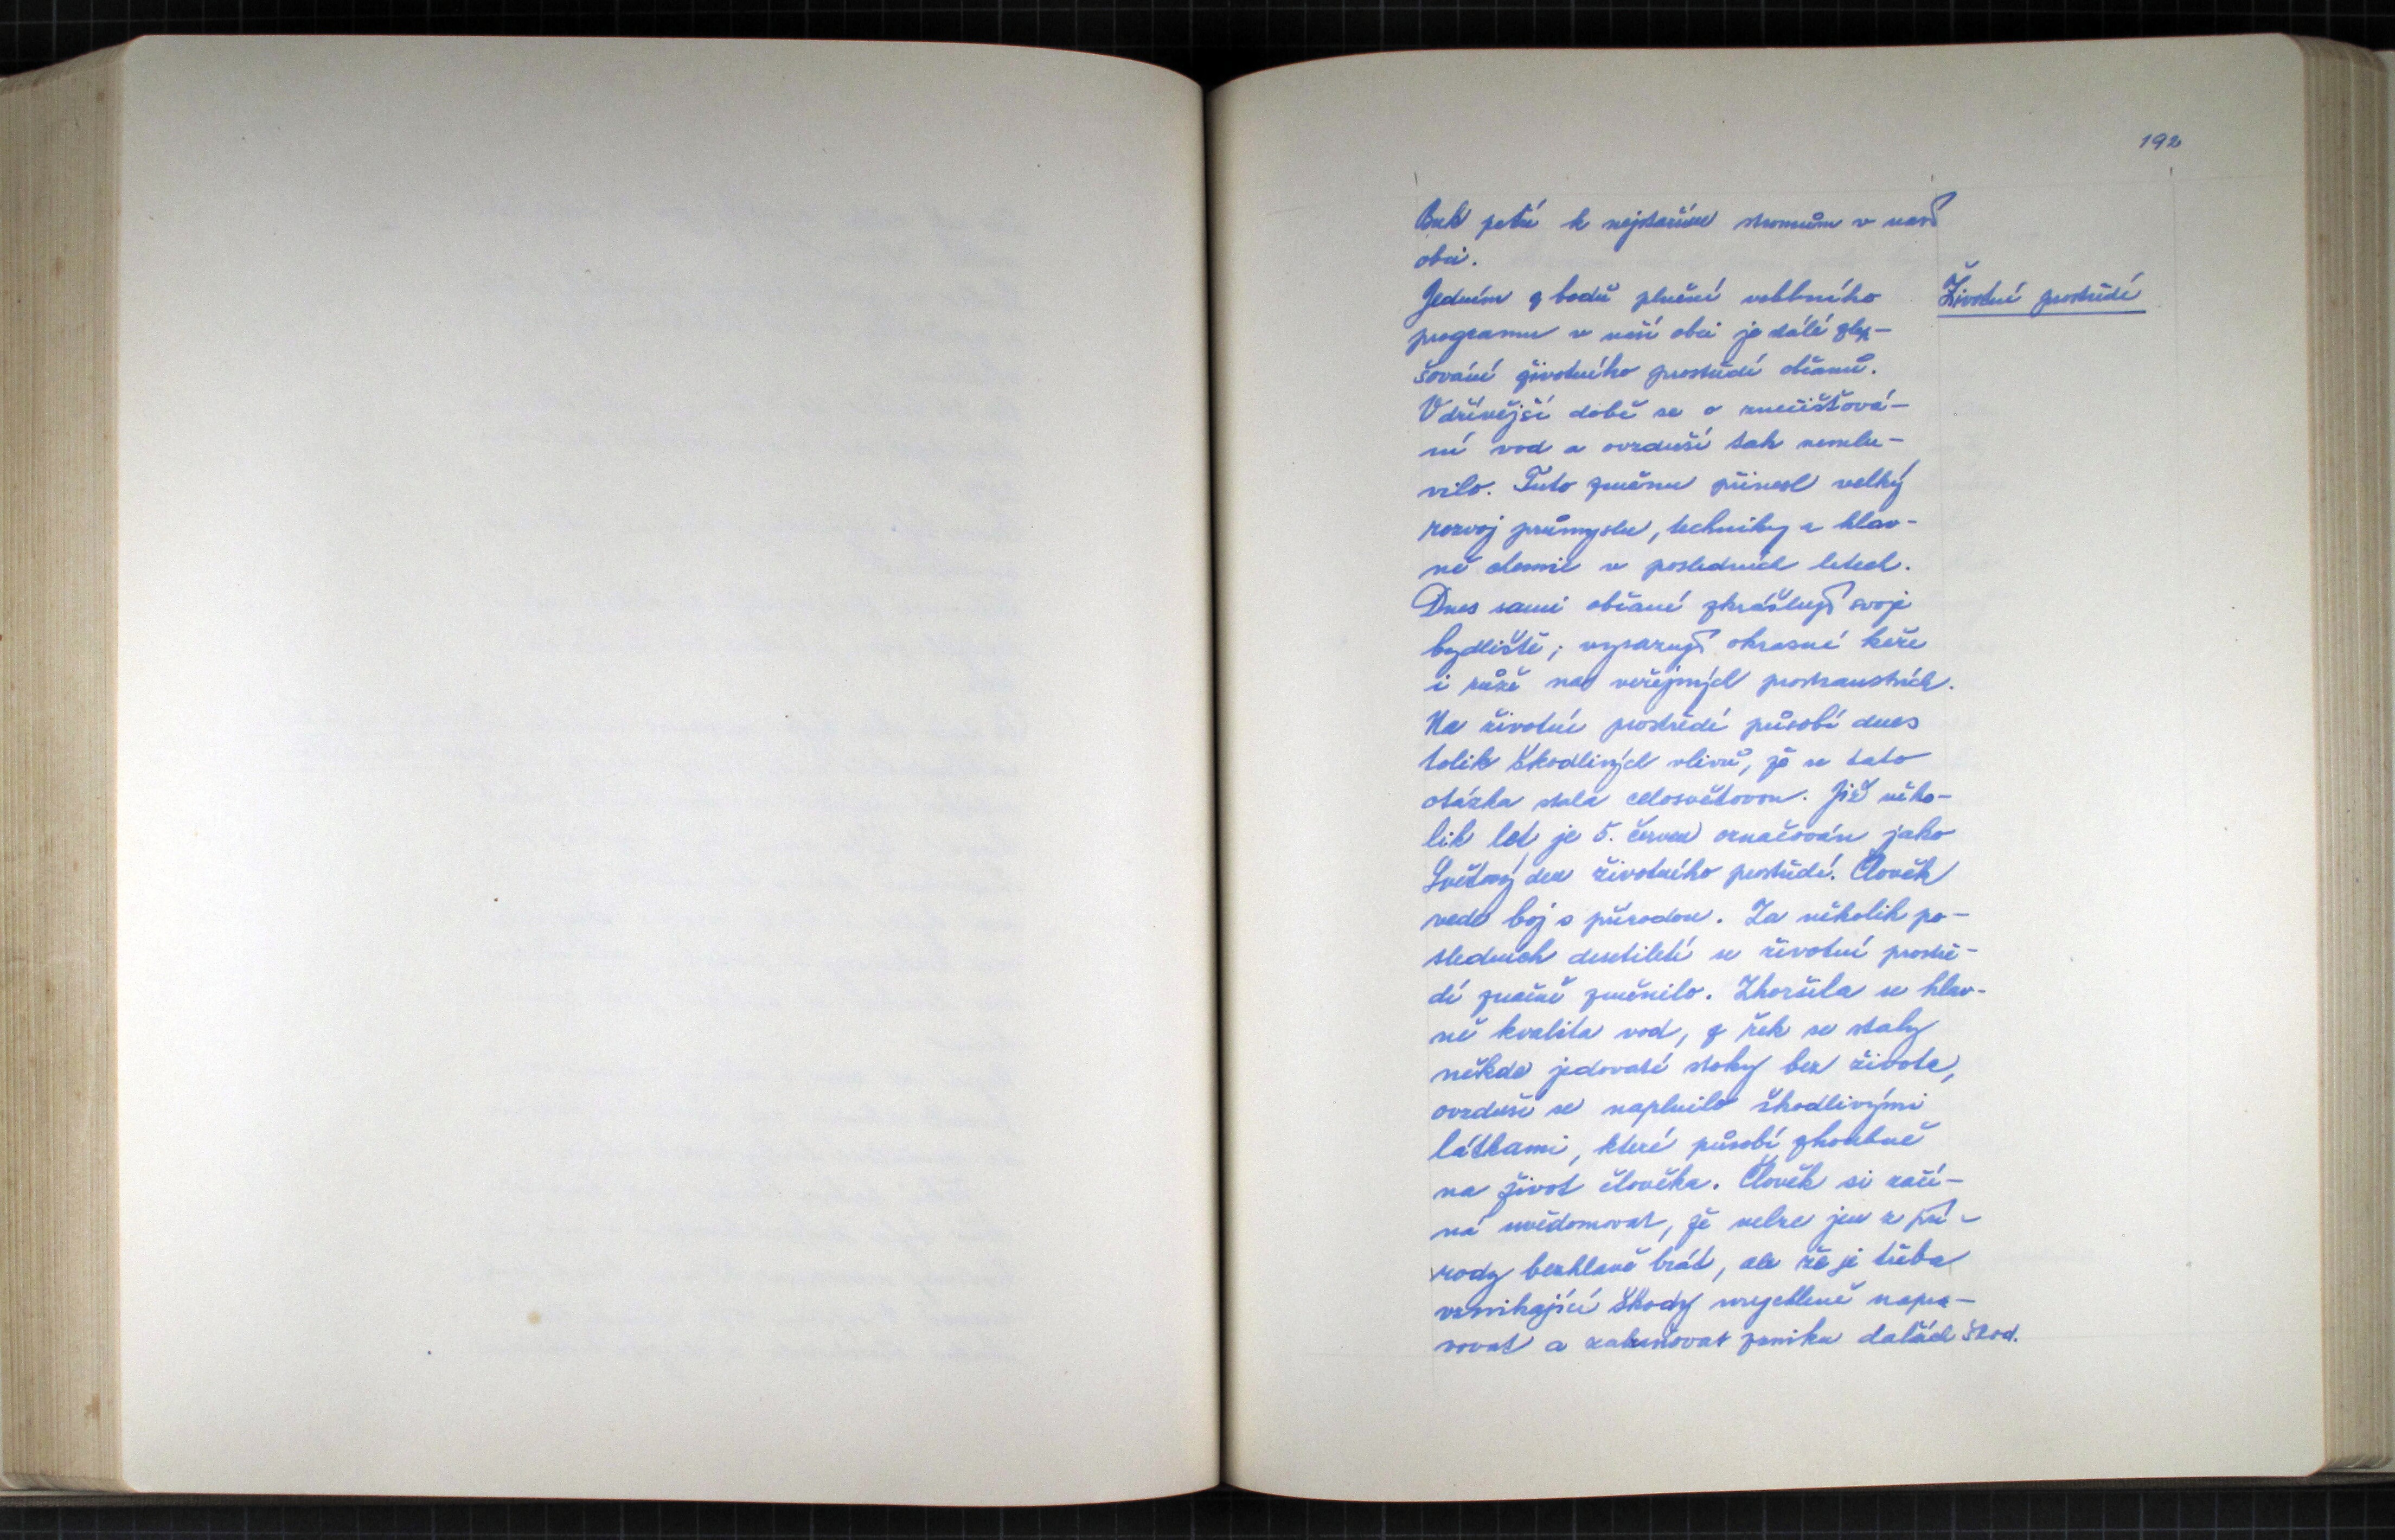 192
Buk patří k nejstarším stromům v naší
obci.
Jedním z bodů plnění volebního
Životní prostředí
programu v naší obci je stálé zlep-
šování životního prostředí občanů.
V dřívější době se o znečišťová-
ní vod a ovzduší tak nemlu-
vilo. Tuto změnu přinesl velký
rozvoj průmyslu, techniky a hlav-
ně chemie v posledních letech.
Dnes sami občané zkrášlují svoje
bydliště; vysazují okrasné keře
i růže na veřejných prostranstvích.
Na životní prostředí působí dnes
tolik škodlivých vlivů, že se tato
otázka stala celosvětovou. Již něko-
lik let je 5. červen označován jako
Světový den životního prostředí. Člověk
vede boj s přírodou. Za několik po-
sledních desetiletí se životní prostře-
dí značně změnilo. Zhoršila se hlav-
ně kvalita vod, z řek se staly
někde jedovaté stoky bez života,
ovzduší se naplnilo škodlivými
látkami, které působí zhoubně
na život člověka. Člověk si začí-
ná uvědomovat, že nelze jen z pří-
rody bezhlavě brát, ale že je třeba
vznikající škody urychleně napra-
vovat a zabraňovat vzniku dalších škod.